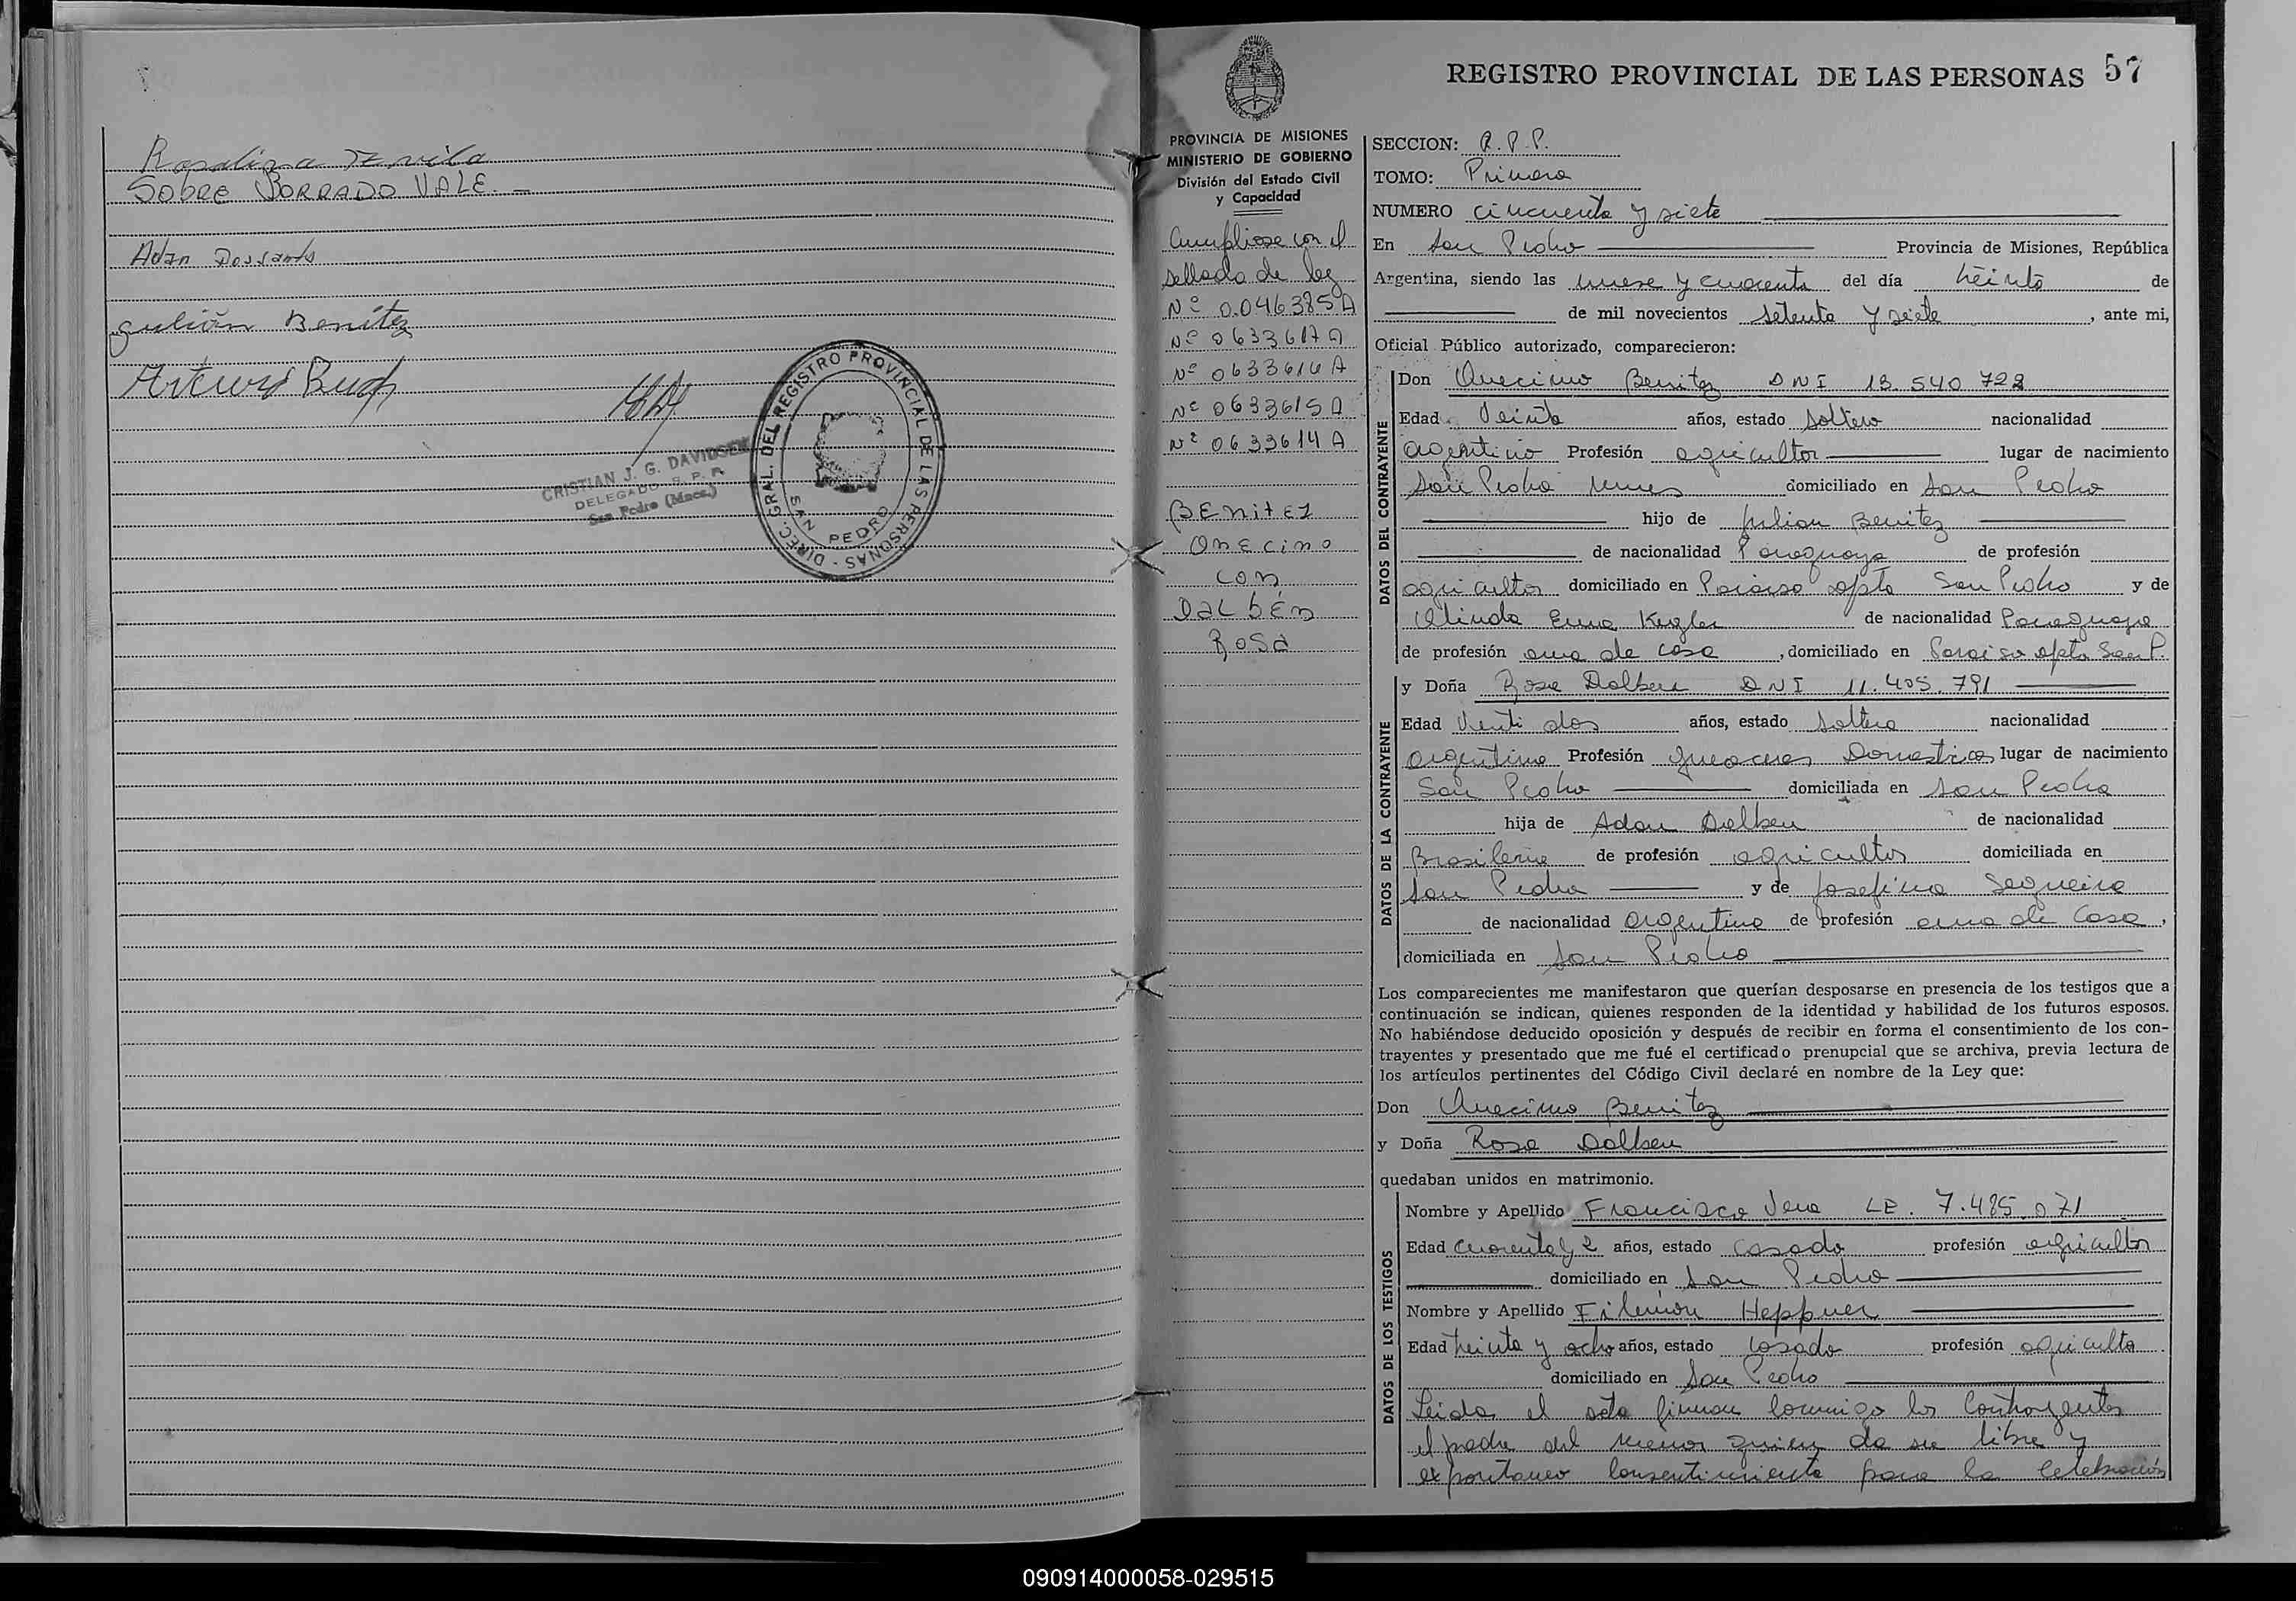 Rosalina
SOBRE BORRADO VALE. -
Adan Dossants
Julián Benítez
Arturo
CRISTIAN J. G. DAVIDSEN
DELEGADO R. P. P.
San Pedro (Mnes.)
DIREC. GRAL. DEL REGISTRO PROVINCIAL DE LAS PERSONAS -
SAN PEDRO
REGISTRO PROVINCIAL DE LAS PERSONAS 57
PROVINCIA DE MISIONES
MINISTERIO DE GOBIERNO
División del Estado Civil
y Capacidad
Cumpliose con el
sellado de ley
Nº 0.0463885 A
Nº 0633617 A
Nº 0633616 A
Nº 0633615 A
Nº 0633614 A
BENITEZ
ONECIMO
CON
DALBÉN
ROSA
SECCION: R.P.P.
TOMO: Primero
NUMERO cincuenta y siete
En San Pedro Provincia de Misiones, República
Argentina, siendo las nueve y cuarenta del día treinta de
de mil novecientos setenta y siete, ante mi,
Oficial Público autorizado, comparecieron:
DATOS DEL CONTRAYENTE
Don Onecimo Benitez DNI 13.540.728
Edad Veinte años, estado soltero nacionalidad
argentino Profesión agricultor lugar de nacimiento
San Pedro Mnes domiciliado en San Pedro
hijo de Julian Benitez
de nacionalidad Paraguaya de profesión
agricultor domiciliado en Paraiso dpto San Pedro y de
Olinda Erna Kegler de nacionalidad Paraguaya
de profesión ama de casa, domiciliado en Paraiso dpto San P.
DATOS DE LA CONTRAYENTE
y Doña Rosa Dalben DNI 11.405.791
Edad Venti dos años, estado soltera nacionalidad
argentina Profesión Queaceres Domesticos lugar de nacimiento
San Pedro domiciliada en San Pedro
hija de Adan Dalben de nacionalidad
Brasilera de profesión agricultor domiciliada en
San Pedro y de Josefina Sequeira
de nacionalidad argentina de profesión ama de casa,
domiciliada en San Pedro
Los comparecientes me manifestaron que querían desposarse en presencia de los testigos que a
continuación se indican, quienes responden de la identidad y habilidad de los futuros esposos.
No habiéndose deducido oposición y después de recibir en forma el consentimiento de los con-
trayentes y presentado que me fué el certificado prenupcial que se archiva, previa lectura de
los artículos pertinentes del Código Civil declaré en nombre de la Ley que:
Don Onecimo Benitez
y Doña Rosa Dalben
quedaban unidos en matrimonio.
DATOS DE LOS TESTIGOS
Nombre y Apellido Francisco Vera LE. 7.485.071
Edad Cuarenta y 2 años, estado casado profesión agricultor
domiciliado en San Pedro
Nombre y Apellido Filemon Heppner
Edad treinta y ocho años, estado casado profesión agriculto
domiciliado en San Pedro
Leida el acta firman conmigo los contrayentes
el padre del menor quien da su libre y
expontaneo consentimiento para la celebración
090914000058-029515